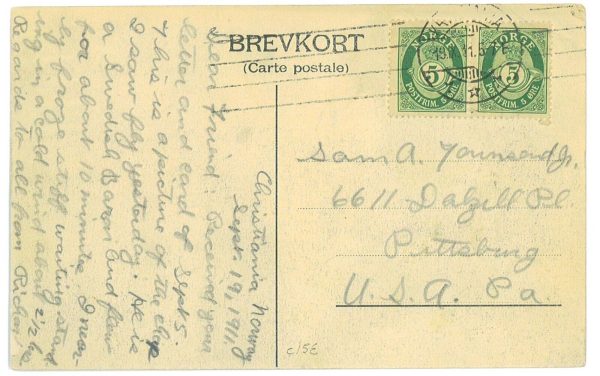 BREVKORT
(Carte postale)
NORGE
5
POSTFRIM. 5 ØRE
NORGE
5
POSTFRIM. 5 ØRE
Christiania Norway
Sept. 19, 1911.
Dear Friend: Received your
letter and card of Sept 5.
This is a picture of the chap
I saw fly yesterday. He is
a Swedish Baron and flew
for about 10 minutes. I near-
ly froze stiff waiting stand-
ing in a cold wind about 2 1/2 hrs.
Regards to all from Richar
Sam A. Townsend Jr.
6611 Dalzell Pl.
Pittsburg
U.S.A. Pa.
c/5E